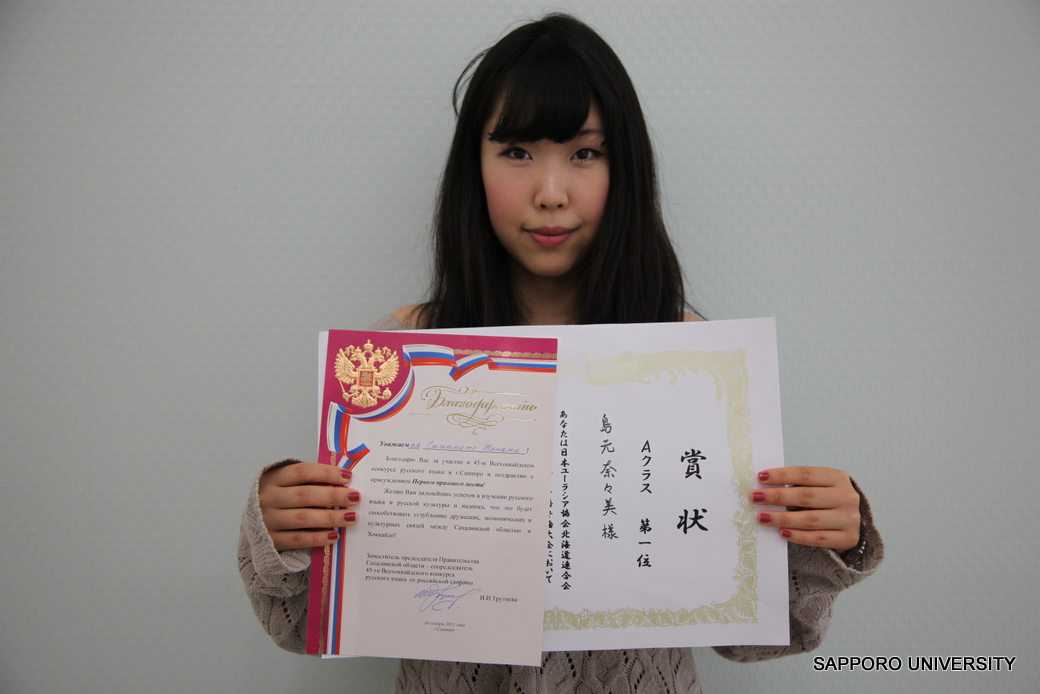 Благодарность
Уважаемая Симамото Нанами!
Благодарю Вас за участие в 45-м Всехоккайдском
конкурсе русского языка в г.Саппоро и поздравляю с
присуждением Первого призового места!
Желаю Вам дальнейших успехов в изучении русского
языка и русской культуры и надеюсь, что это будет
способствовать углублению дружеских, экономических и
культурных связей между Сахалинской областью и
Хоккайдо!
Заместитель председателя Правительства
Сахалинской области – сопредседатель
45-го Всехоккайдского конкурса
русского языка от российской стороны
И.И.Трутнева
г.Саппоро
賞状
Aクラス 第一位
島元奈々美様
あなたは日本ユーラシア協会北海道連合会
大会において
SAPPORO UNIVERSITY